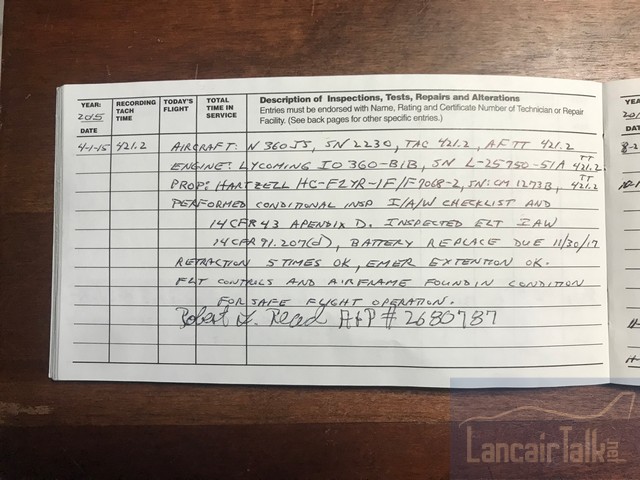 YEAR:
2015
DATE
RECORDING
TACH
TIME
TODAY'S
FLIGHT
TOTAL
TIME IN
SERVICE
Description of Inspections, Tests, Repairs and Alterations
Entries must be endorsed with Name, Rating and Certificate Number of Technician or Repair
Facility. (See back pages for other specific entries.)
4-1-15 421.2 AIRCRAFT: N360JS, SN 2230, TAC 421.2, AFTT 421.2
ENGINE: LYCOMING IO 360-B1B, SN L-25750-51A TT 421.2
PROP: HARTZELL HC-F2YR-1F/F7068-2, SN: CM 1273B, TT 421.2
PERFORMED CONDITIONAL INSP I/A/W CHECKLIST AND
14 CFR 43 APENDIX D. INSPECTED ELT IAW
14 CFR 91.207(d), BATTERY REPLACE DUE 11/30/17
RETRACTION 5 TIMES OK, EMER EXTENTION OK.
FLT CONTROLS AND AIRFRAME FOUND IN CONDITION
FOR SAFE FLIGHT OPERATION.
Robert Read A&P # 2680787
YEAR:
DATE
8-2
LancairTalk.net